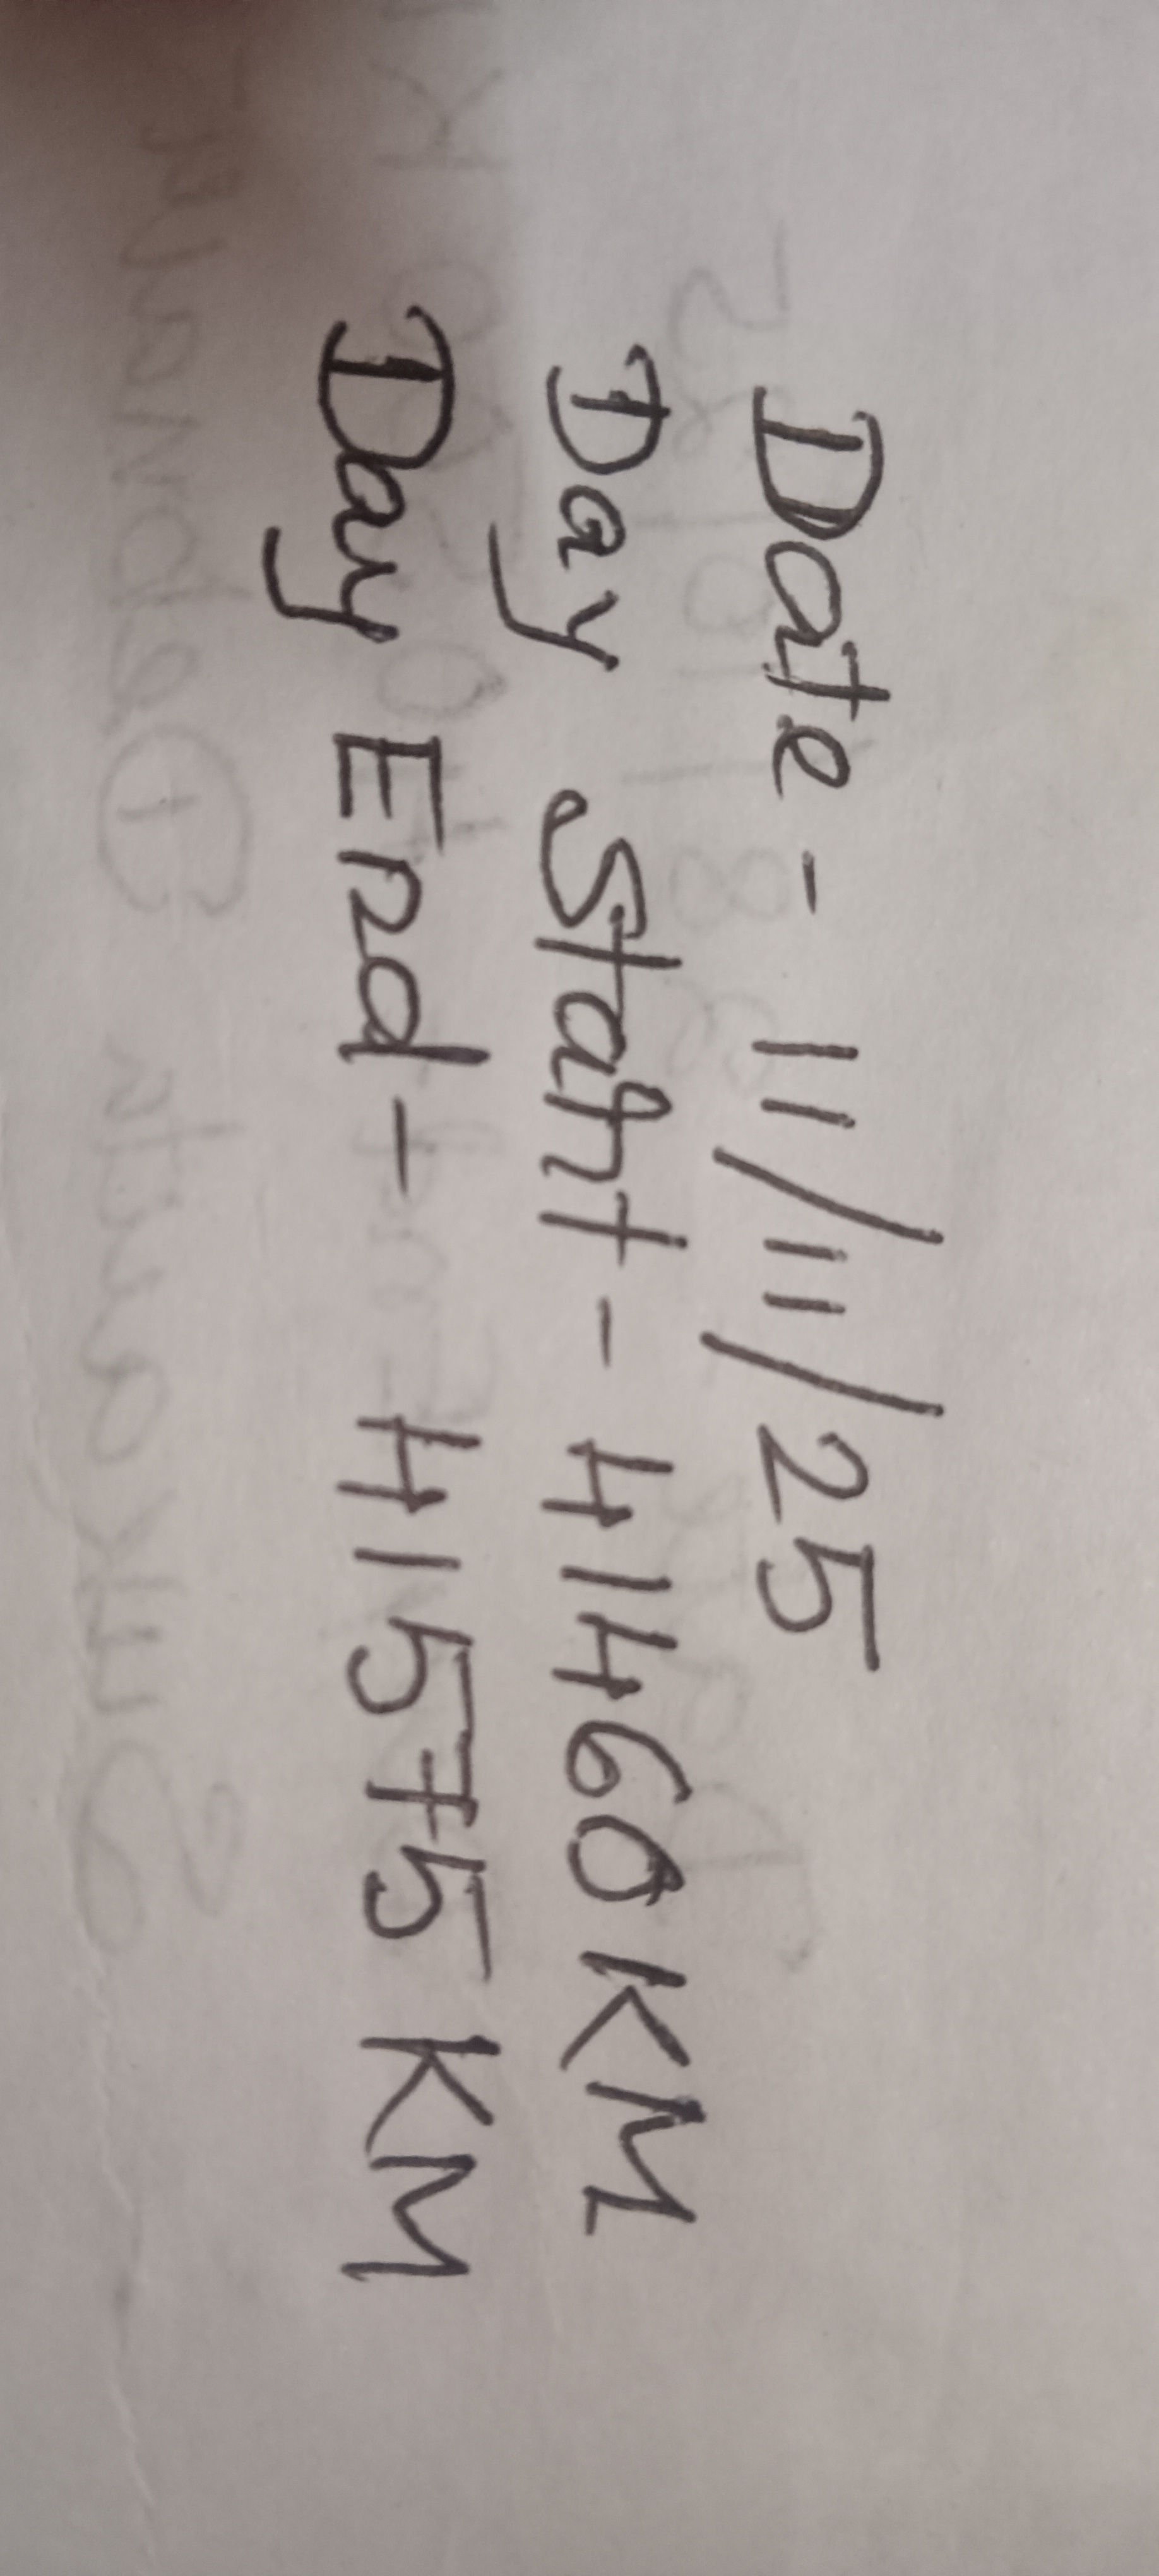 Date - 11/11/25
Day Start - 41460 KM
Day End - 41575 KM